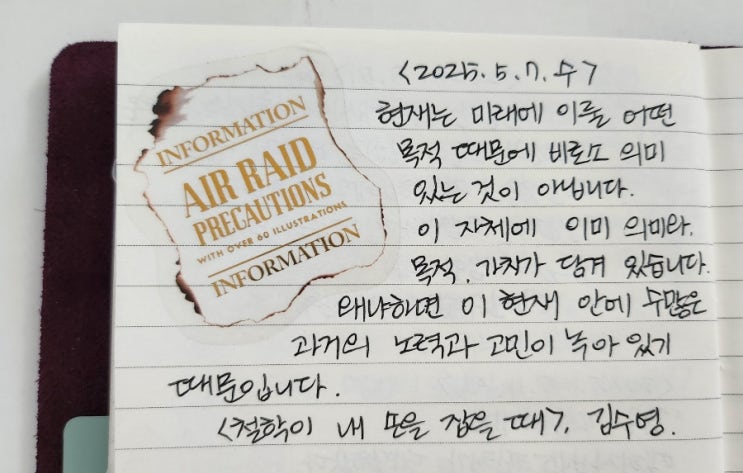 INFORMATION
AIR RAID
PRECAUTIONS
WITH OVER 60 ILLUSTRATIONS
INFORMATION
<2025.5.7.수>
현재는 미래에 이룰 어떤
목적 때문에 비로소 의미
있는 것이 아닙니다.
이 자체에 이미 의미와,
목적, 가치가 담겨 있습니다.
왜냐하면 이 현재 안에 수많은
과거의 노력과 고민이 녹아 있기
때문입니다.
<철학이 내 손을 잡을 때>, 김수영.